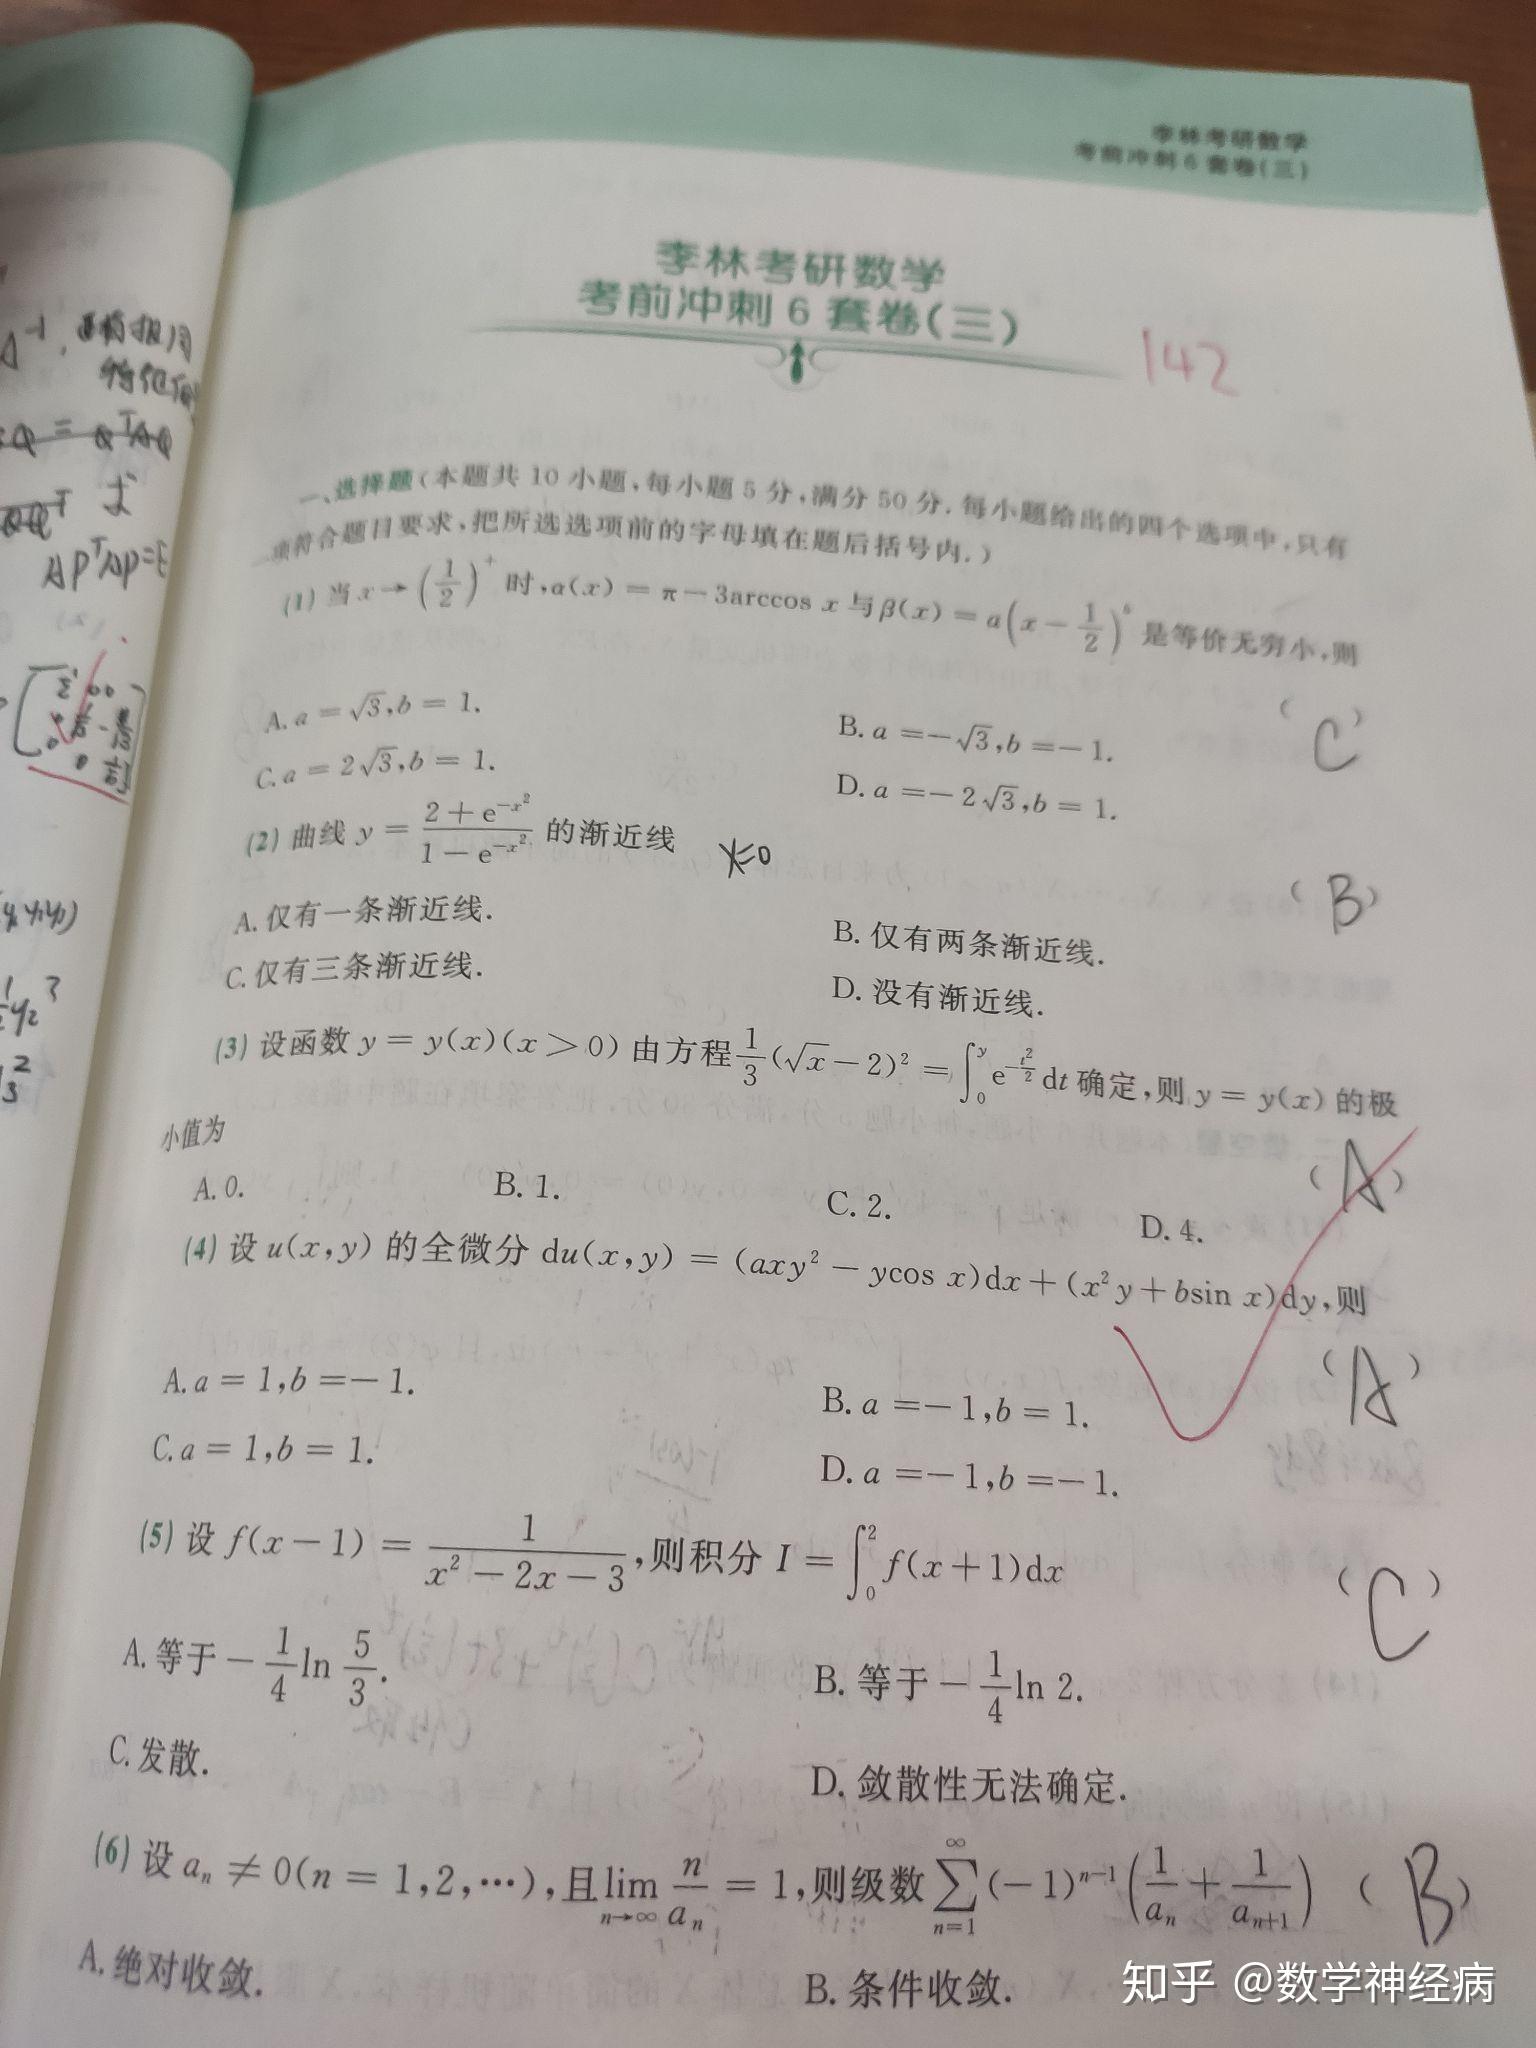 李林考研数学
考前冲刺6套卷(三)
李林考研数学
考前冲刺6套卷(三)
142
一、选择题(本题共10小题,每小题5分,满分50分.每小题给出的四个选项中,只有
一项符合题目要求,把所选选项前的字母填在题后括号内.)
(1) 当 x→(1/2)⁺ 时,α(x) = π－3arccos x 与 β(x) = a(x－1/2)ᵇ 是等价无穷小,则
( C )
A. a = √3,b = 1.
B. a =－√3,b =－1.
C. a = 2√3,b = 1.
D. a =－2√3,b = 1.
(2) 曲线 y = (2+e^(-x²))/(1－e^(-x²)) 的渐近线 x=0
( B )
A. 仅有一条渐近线.
B. 仅有两条渐近线.
C. 仅有三条渐近线.
D. 没有渐近线.
(3) 设函数 y = y(x)(x＞0) 由方程 1/3(√x－2)² = ∫₀^y e^(-t²/2) dt 确定,则 y = y(x) 的极
小值为
( A )
A. 0.
B. 1.
C. 2.
D. 4.
(4) 设 u(x,y) 的全微分 du(x,y) = (axy²－ycos x)dx＋(x²y＋bsin x)dy,则
( A )
A. a = 1,b =－1.
B. a =－1,b = 1.
C. a = 1,b = 1.
D. a =－1,b =－1.
(5) 设 f(x－1) = 1/(x²－2x－3),则积分 I = ∫₀² f(x+1)dx
( C )
A. 等于 －1/4 ln 5/3.
B. 等于 －1/4 ln 2.
C. 发散.
D. 敛散性无法确定.
(6) 设 aₙ ≠ 0(n = 1,2,…),且 lim n→∞ n/aₙ = 1,则级数 ∑ n=1 ∞ (－1)ⁿ⁻¹(1/aₙ + 1/aₙ₊₁) ( B )
A. 绝对收敛.
B. 条件收敛.
知乎 @数学神经病